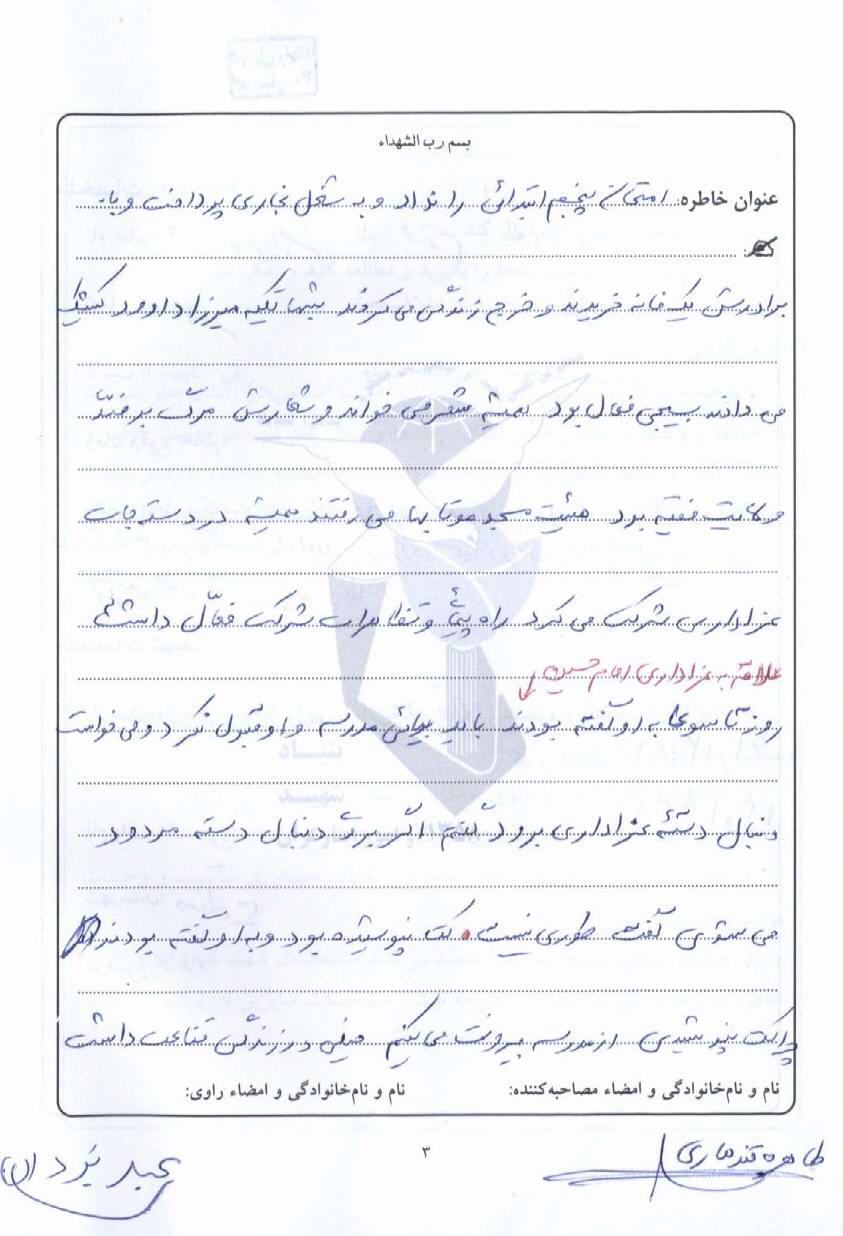 بسم رب الشهداء
عنوان خاطره: امتحان پنجم ابتدائی را نداد و به شغل نجاری پرداخت و با
برادرش یک خانه خریدند و خرج زندگی می کردند شبها تکیه میرزا داوود کشیک
می دادند بسیجی فعال بود همیشه شعر می خواند و شعارش مرگ بر ضدّ
ولایت فقیه بود هیئت مسجد موتابها می رفتند همیشه در دستجات
عزاداری شرکت می کرد راه پیمایی و تظاهرات شرکت فعّال داشت
علاقه به عزاداری امام حسین
روز تاسوعا به او گفته بودند باید بیائی مدرسه و او قبول نکرد و می خواست
دنبال دستهٔ عزاداری برود گفتم اگر بری دنبال دسته مردود
می شوی گفت طوری نیست. کت نپوشیده بود و به او گفته بودند
کت نپوشیدی از مدرسه بیرونت می کنیم خیلی در زندگی قناعت داشت
نام و نام‌خانوادگی و امضاء مصاحبه‌کننده:
نام و نام‌خانوادگی و امضاء راوی:
۳
طاهره قندهاری